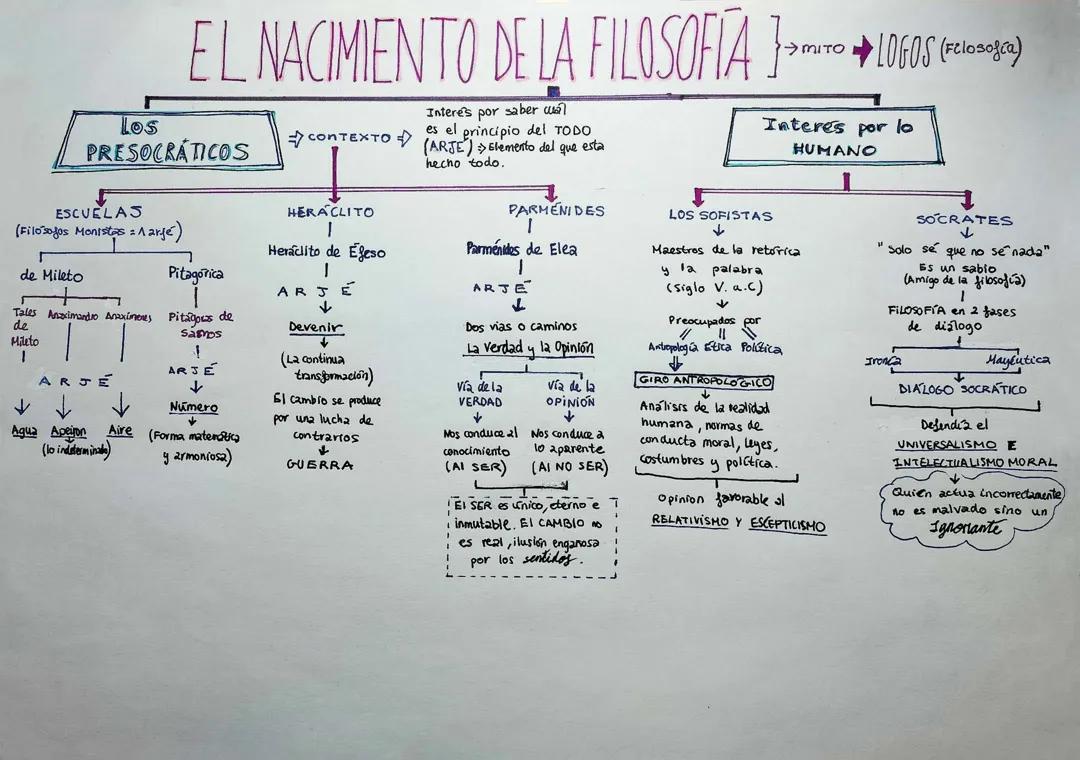 EL NACIMIENTO DE LA FILOSOFÍA } → MITO → LOGOS (Filosofía)
LOS
PRESOCRÁTICOS
⇒ CONTEXTO ⇒
Interés por saber cuál
es el principio del TODO
(ARJÉ) → Elemento del que esta
hecho todo.
Interés por lo
HUMANO
ESCUELAS
(Filósofos Monistas = 1 arjé)
de Mileto
Pitagórica
Tales
de
Mileto
Anaximandro
Anaxímenes
ARJÉ
Agua
Apeiron
(lo indeterminado)
Aire
Pitágoras de
Samos
ARJÉ
Número
(Forma matemática
y armoniosa)
HERÁCLITO
Heráclito de Éfeso
ARJÉ
Devenir
(La continua
transformación)
El cambio se produce
por una lucha de
contrarios
GUERRA
PARMÉNIDES
Parménides de Elea
ARJÉ
Dos vias o caminos
La verdad y la Opinión
Vía de la
VERDAD
Nos conduce al
conocimiento
(Al SER)
Vía de la
OPINIÓN
Nos conduce a
lo aparente
(Al NO SER)
El SER es único, eterno e
inmutable. El CAMBIO no
es real, ilusión enganosa
por los sentidos.
LOS SOFISTAS
Maestros de la retórica
y la palabra
(Siglo V. a.C)
Preocupados por
Antropología Ética Política
GIRO ANTROPOLÓGICO
Análisis de la realidad
humana, normas de
conducta moral, leyes,
costumbres y política.
Opinion favorable al
RELATIVISMO Y ESCEPTICISMO
SÓCRATES
"Solo sé que no sé nada"
Es un sabio
(Amigo de la filosofía)
FILOSOFÍA en 2 fases
de diálogo
Ironía
Mayéutica
DIÁLOGO SOCRÁTICO
Defendía el
UNIVERSALISMO E
INTELECTUALISMO MORAL
Quién actua incorrectamente
no es malvado sino un
Ignorante